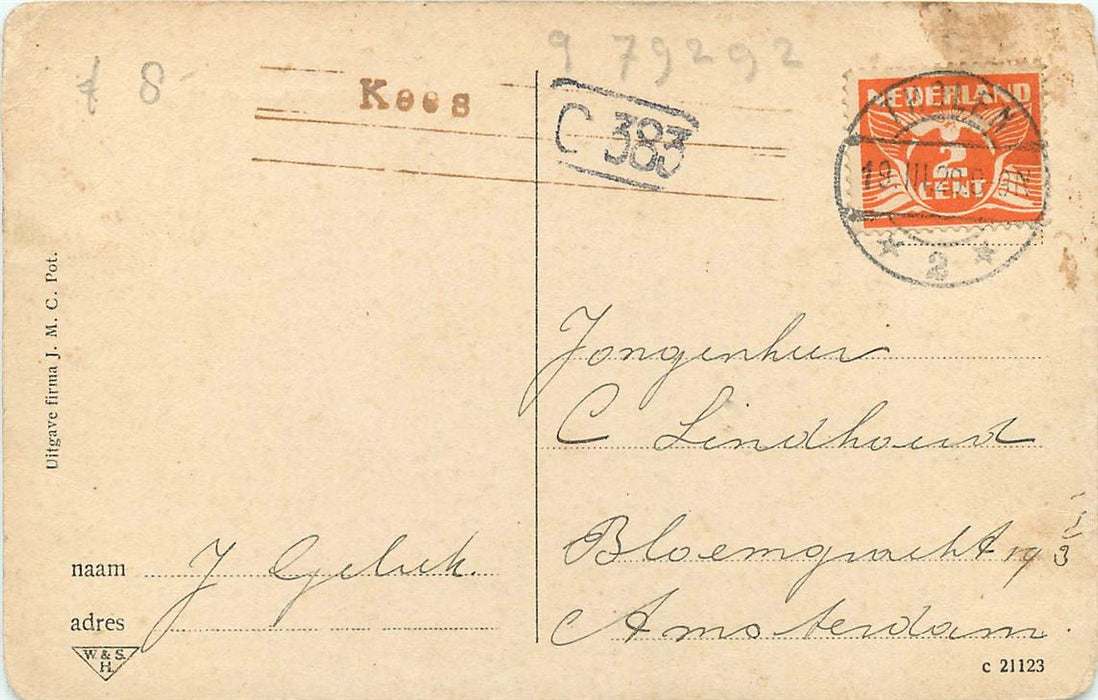 9 79292
8
Kees
C 383
NEDERLAND
2
CENT
THOLEN
19 III
2
Uitgave firma J. M. C. Pot.
Jongenheer
C Lindhoud
Bloemgracht 19 1/3
Amsterdam
naam J Geluk.
adres
W. & S.
H.
c 21123